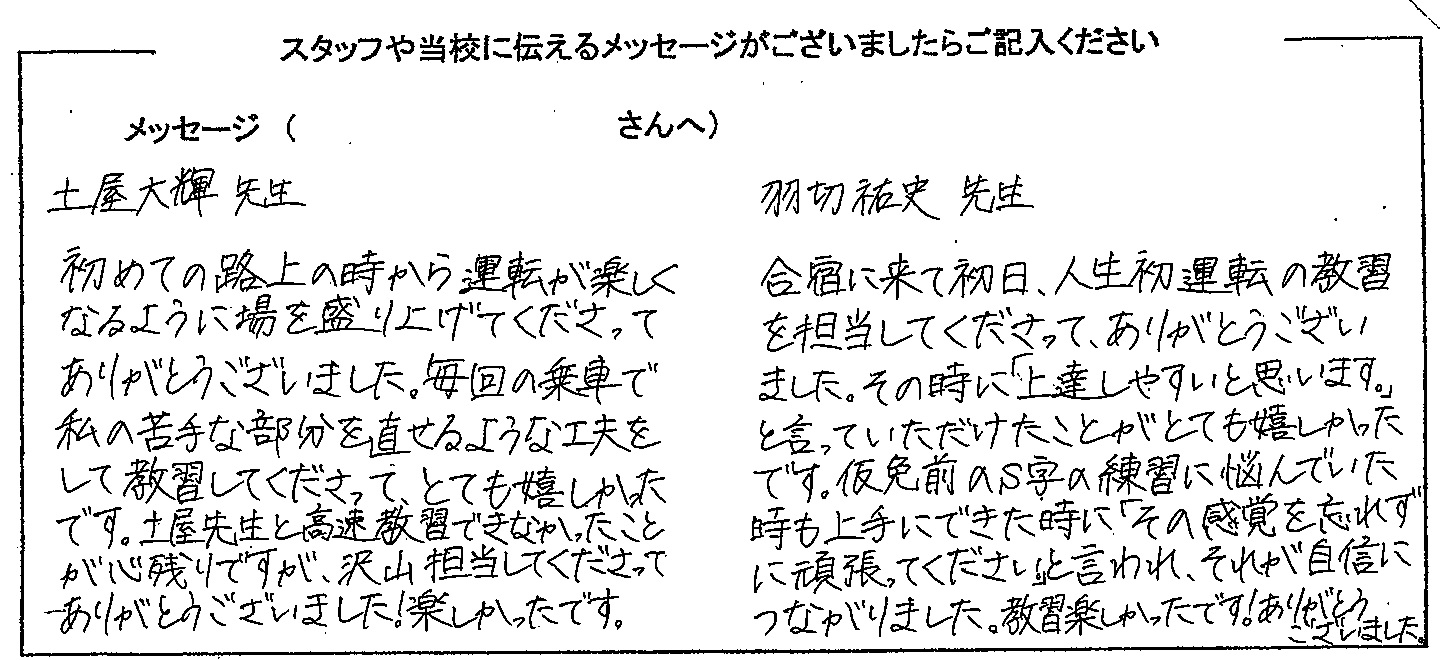 スタッフや当校に伝えるメッセージがございましたらご記入ください
メッセージ（　　　　　　　　　　さんへ）
土屋大輝 先生
初めての路上の時から運転が楽しく
なるように場を盛り上げてくださって
ありがとうございました。毎回の乗車で
私の苦手な部分を直せるような工夫を
して教習してくださって、とても嬉しかった
です。土屋先生と高速教習できなかったこと
が心残りですが、沢山担当してくださって
ありがとうございました！楽しかったです。
羽切祐史 先生
合宿に来て初日、人生初運転の教習
を担当してくださって、ありがとうござい
ました。その時に「上達しやすいと思います。」
と言っていただけたことがとても嬉しかった
です。仮免前のS字の練習に悩んでいた
時も上手にできた時に「その感覚を忘れず
に頑張ってください」と言われ、それが自信に
つながりました。教習楽しかったです！ありがとう
ございました。